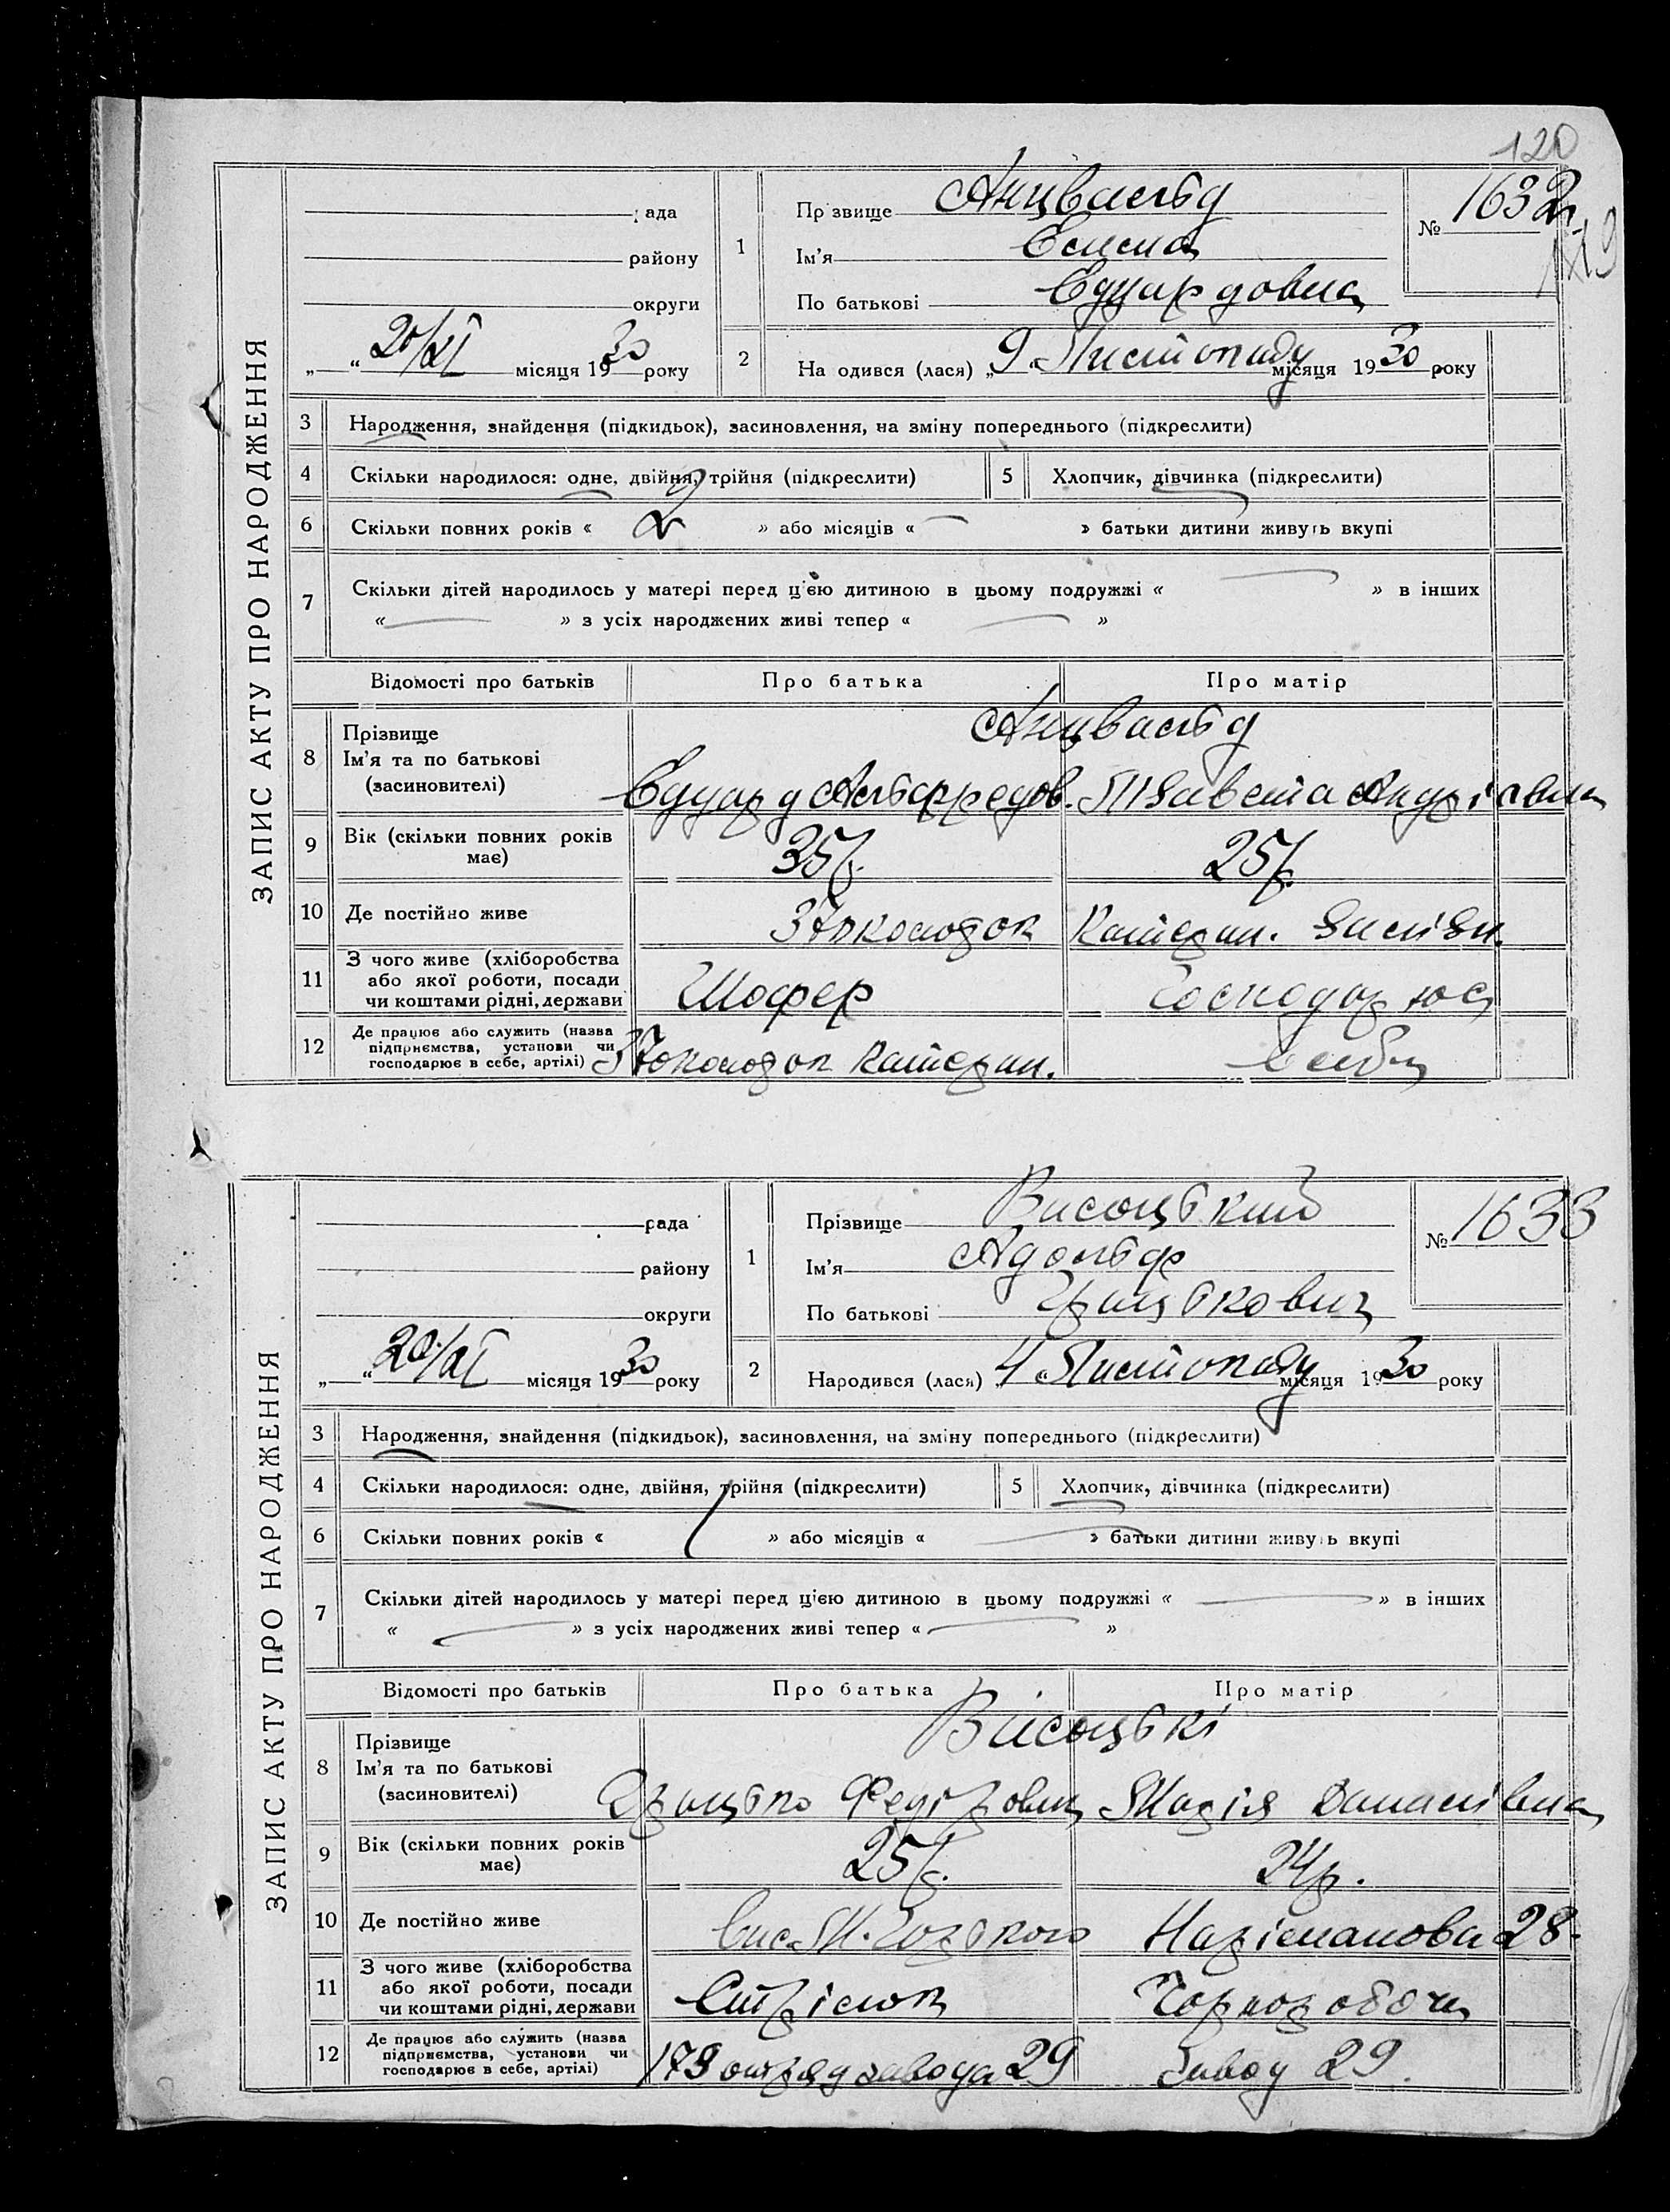 120
ЗАПИС АКТУ ПРО НАРОДЖЕННЯ
ада
району
округи
„ “ 20/XI місяця 1930 року
1 Пр звище Анцвальд
Ім'я Єлена
По батькові Едуардовна
№ 1632
119
2 На одився (лася) „9“ Листопаду місяця 1930 року
3 Народження, знайдення (підкидьок), засиновлення, на зміну попереднього (підкреслити)
4 Скільки народилося: одне, двійня, трійня (підкреслити) 5 Хлопчик, дівчинка (підкреслити)
6 Скільки повних років « 2 » або місяців « — » батьки дитини живуть вкупі
7 Скільки дітей народилось у матері перед цією дитиною в цьому подружжі « — » в інших
« — » з усіх народжених живі тепер « — »
Відомості про батьків Про батька Про матір
8 Прізвище Ім'я та по батькові (засиновителі)
Анцвальд
Едуард Альфредов. Лізавета Андріївна
9 Вік (скільки повних років має) 35 р. 25 р.
10 Де постійно живе Катерин.
11 З чого живе (хліборобства або якої роботи, посади чи коштами рідні, держави Шофер Господарює
12 Де працює або служить (назва підприємства, установи чи господарює в себе, артілі) Катерин.
ЗАПИС АКТУ ПРО НАРОДЖЕННЯ
рада
району
округи
„ “ 20/XI місяця 1930 року
1 Прізвище Висоцький
Ім'я Адольф
По батькові Грицькович
№ 1633
2 Народився (лася) „4“ Листопаду місяця 1930 року
3 Народження, знайдення (підкидьок), засиновлення, на зміну попереднього (підкреслити)
4 Скільки народилося: одне, двійня, трійня (підкреслити) 5 Хлопчик, дівчинка (підкреслити)
6 Скільки повних років « 1 » або місяців « — » батьки дитини живуть вкупі
7 Скільки дітей народилось у матері перед цією дитиною в цьому подружжі « — » в інших
« — » з усіх народжених живі тепер « — »
Відомості про батьків Про батька Про матір
8 Прізвище Ім'я та по батькові (засиновителі)
Висоцькі
Грицько Федірович Марія Панасівна
9 Вік (скільки повних років має) 25 р. 24 р.
10 Де постійно живе М. Горького Наріманова 28.
11 З чого живе (хліборобства або якої роботи, посади чи коштами рідні, держави Стрілок Чорнороboча
12 Де працює або служить (назва підприємства, установи чи господарює в себе, артілі) 173 отряд завода 29 Завод 29.